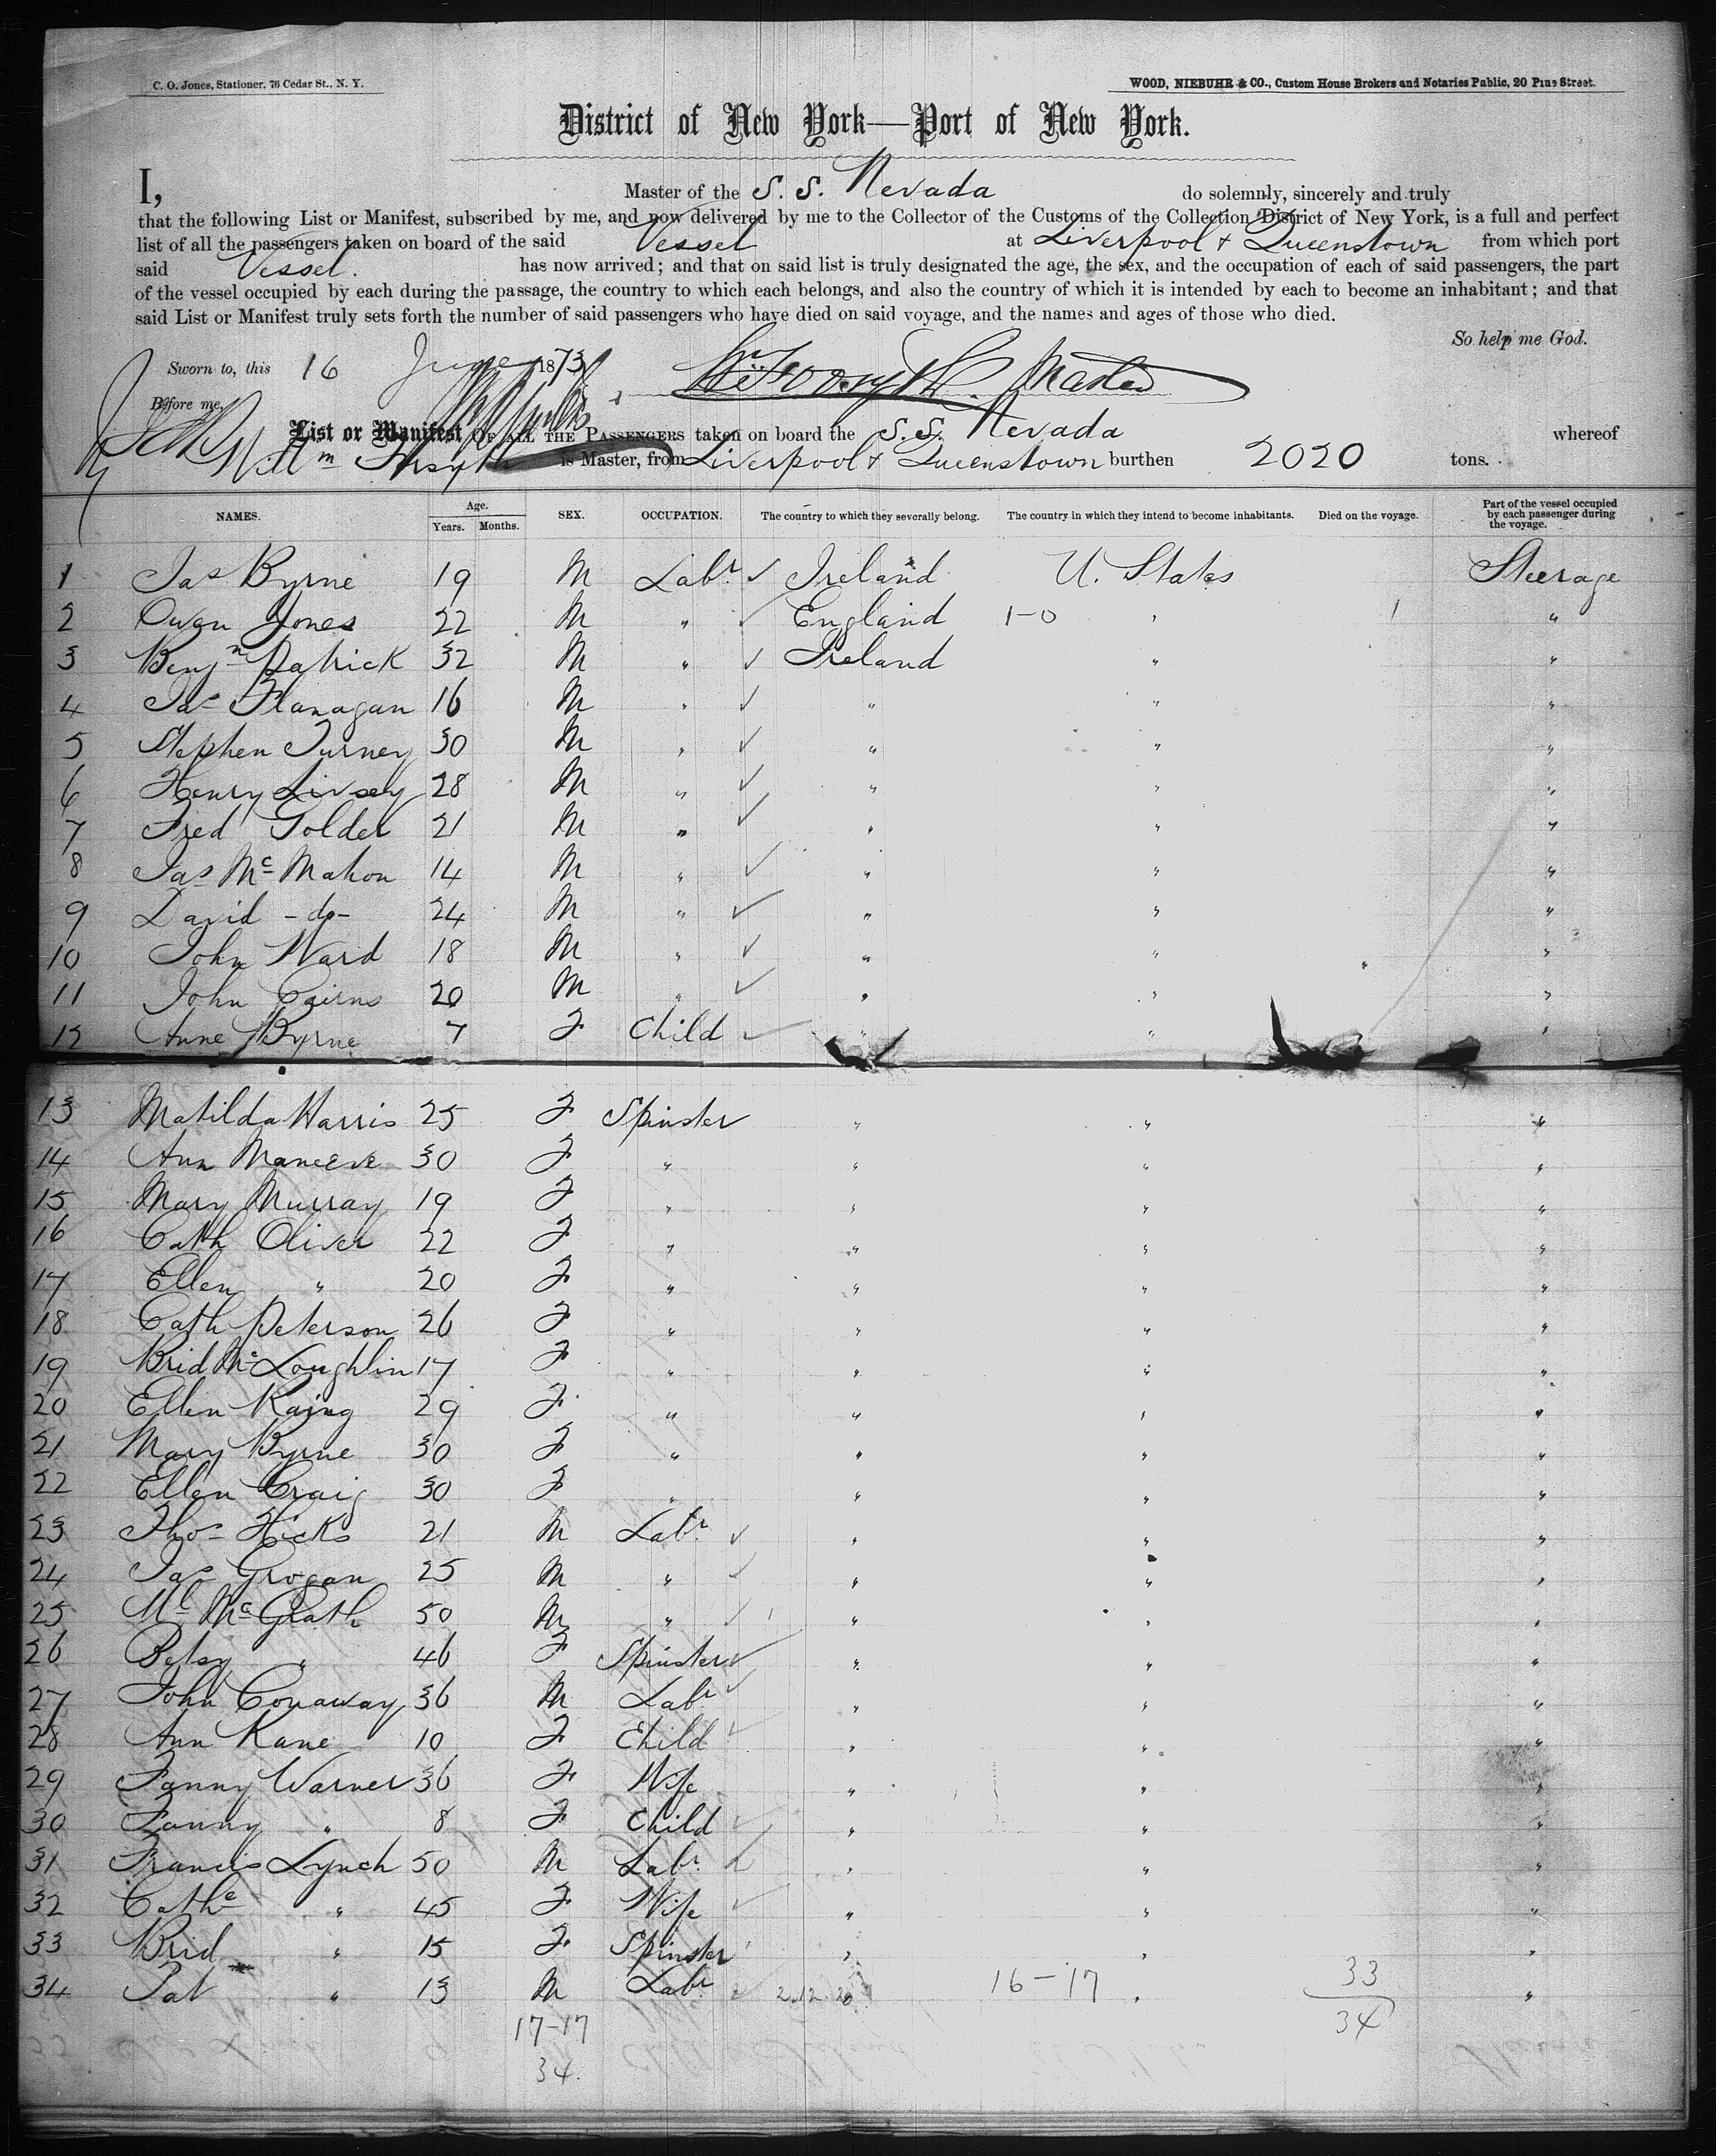 C. O. Jones, Stationer, 76 Cedar St., N. Y.
WOOD, NIEBUHR & CO., Custom House Brokers and Notaries Public, 20 Pine Street.
District of New York—Port of New York.
I, Master of the S. S. Nevada do solemnly, sincerely and truly
that the following List or Manifest, subscribed by me, and now delivered by me to the Collector of the Customs of the Collection District of New York, is a full and perfect
list of all the passengers taken on board of the said Vessel at Liverpool & Queenstown from which port
said Vessel. has now arrived; and that on said list is truly designated the age, the sex, and the occupation of each of said passengers, the part
of the vessel occupied by each during the passage, the country to which each belongs, and also the country of which it is intended by each to become an inhabitant; and that
said List or Manifest truly sets forth the number of said passengers who have died on said voyage, and the names and ages of those who died.
So help me God.
Sworn to, this 16 June 1873 Wm Forsyth Master
Before me,
List or Manifest OF ALL THE PASSENGERS taken on board the S.S. Nevada whereof
Will m Forsyth is Master, from Liverpool & Queenstown burthen 2020 tons.
NAMES. Age. Years. Months. SEX. OCCUPATION. The country to which they severally belong. The country in which they intend to become inhabitants. Died on the voyage. Part of the vessel occupied by each passenger during the voyage.
1 Jas Byrne 19 M Labr ✓ Ireland U. States Steerage
2 Owen Jones 22 M " ✓ England 1-0 " 1 "
3 Benjn Patrick 32 M " ✓ Ireland " "
4 Jas Flanagan 16 M " ✓ " " "
5 Stephen Turney 30 M " ✓ " " "
6 Henry Livsey 28 M " ✓ " " "
7 Fred Golder 21 M " ✓ " " "
8 Jas Mc Mahon 14 M " ✓ " " "
9 David -do- 24 M " ✓ " " "
10 John Ward 18 M " ✓ " " "
11 John Cairns 20 M " ✓ " " "
12 Anne Byrne 7 F Child ✓ " " "
13 Matilda Harris 25 F Spinster " " "
14 Ann 30 F " " " "
15 Mary Murray 19 F " " " "
16 Cath Oliver 22 F " " " "
17 Ellen " 20 F " " " "
18 Cath Peterson 26 F " " " "
19 Brid Mc Loughlin 17 F " " " "
20 Ellen 29 F " " " "
21 Mary Byrne 30 F " " " "
22 Ellen Craig 30 F " " " "
23 Thos Hicks 21 M Labr ✓ " " "
24 Jas Grogan 25 M " ✓ " " "
25 Ml Mc Grath 50 M " ✓ " " "
26 Betsy " 46 F Spinster ✓ " " "
27 John Conaway 36 M Labr ✓ " " "
28 Ann Kane 10 F Child ✓ " " "
29 Fanny Warner 36 F Wife " " "
30 Fanny " 8 F Child ✓ " " "
31 Francis Lynch 50 M Labr ✓ " " "
32 Cathe " 45 F Wife ✓ " " "
33 Brid " 15 F Spinster " " "
34 Pat " 13 M Labr ✓ 2.12.20 16-17 " 33 "
17-17 34
34.